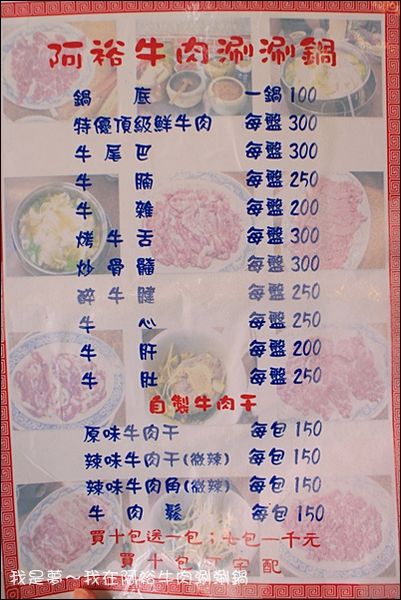 阿裕牛肉涮涮鍋
鍋底 一鍋100
特優頂級鮮牛肉 每盤300
牛尾巴 每盤300
牛腩 每盤250
牛雜 每盤200
烤牛舌 每盤300
炒骨髓 每盤300
醉牛腱 每盤250
牛心 每盤250
牛肝 每盤200
牛肚 每盤250
自製牛肉干
原味牛肉干 每包150
辣味牛肉干(微辣) 每包150
辣味牛肉角(微辣) 每包150
牛肉鬆 每包150
買十包送一包；七包一千元
買十包可宅配
我是夢～我在阿裕牛肉涮涮鍋